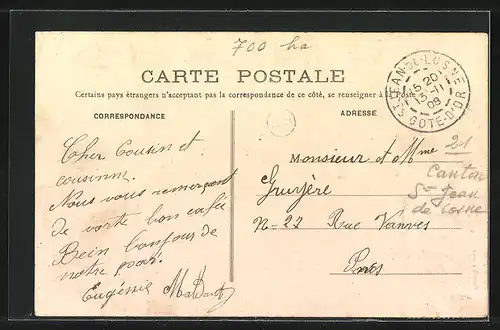 700 ha
CARTE POSTALE
Certains pays étrangers n'acceptant pas la correspondance de ce côté, se renseigner à la Poste
CORRESPONDANCE
ADRESSE
ST JEAN-DE-LOSNE
15-20
13-11
09
COTE-D'OR
Cher Cousin et
cousinne.
Nous vous remerçont
de vorte bon cafée
Bein bonjour de
notre part.
Eugénie
Monsieur et Mme
Gruyère
N= 27 Rue Vanves
Paris
21
Canton
St Jean
de Losne